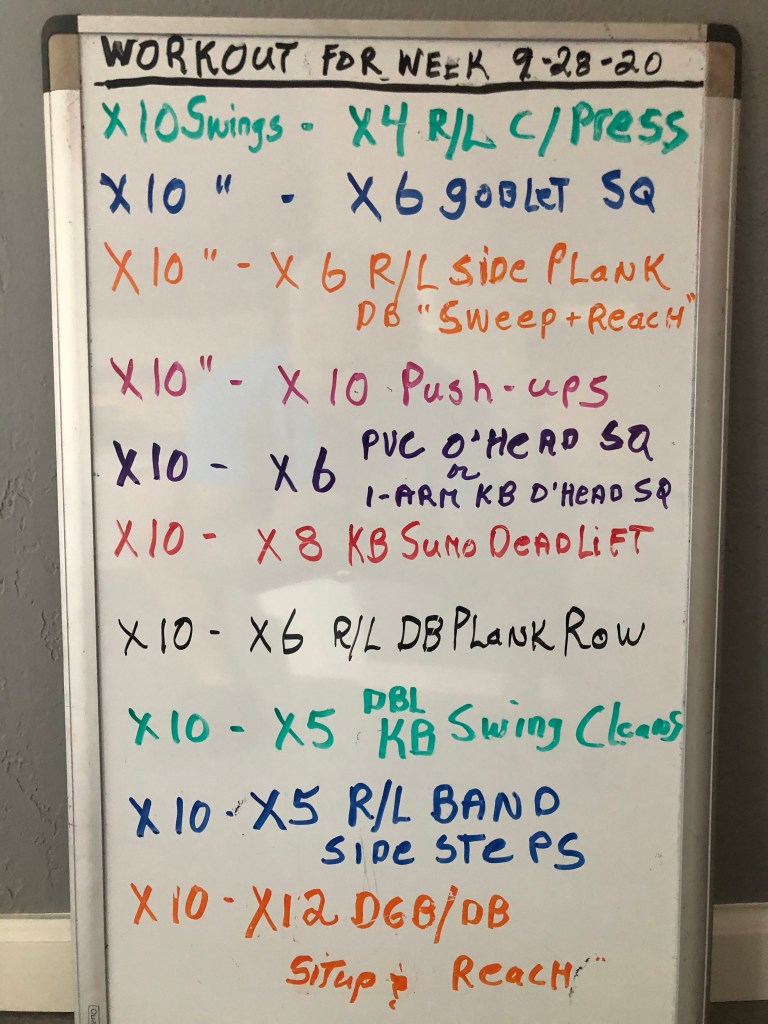 WORKOUT FOR WEEK 9-28-20
X10 Swings - X4 R/L C/Press
X10 " - X6 GOBLET SQ
X10 " - X6 R/L SIDE PLANK
DB "Sweep + ReacH"
X10 " - X10 Push-ups
X10 - X6 PVC O'HEAD SQ
or
1-ARM KB O'HEAD SQ
X10 - X8 KB Sumo DEADLiFT
X10 - X6 R/L DB PLANK Row
X10 - X5 DBL KB Swing Cleans
X10 - X5 R/L BAND
SIDE STEPS
X10 - X12 DGB/DB
Situp & ReacH"